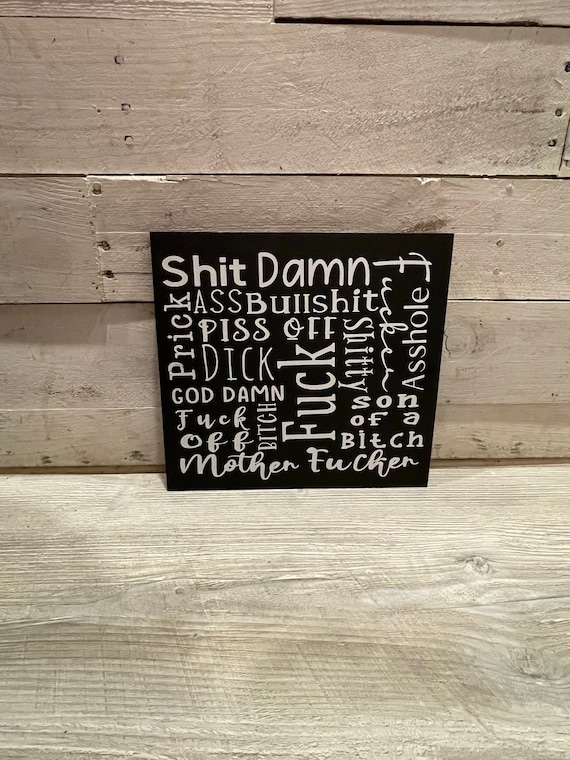 Shit Damn
Prick
ASS Bullshit
Fucker
Asshole
PISS OFF
Shitty
DICK
Fuck
GOD DAMN
Son
of a
Bitch
Fuck
Off
BITCH
Mother Fucker